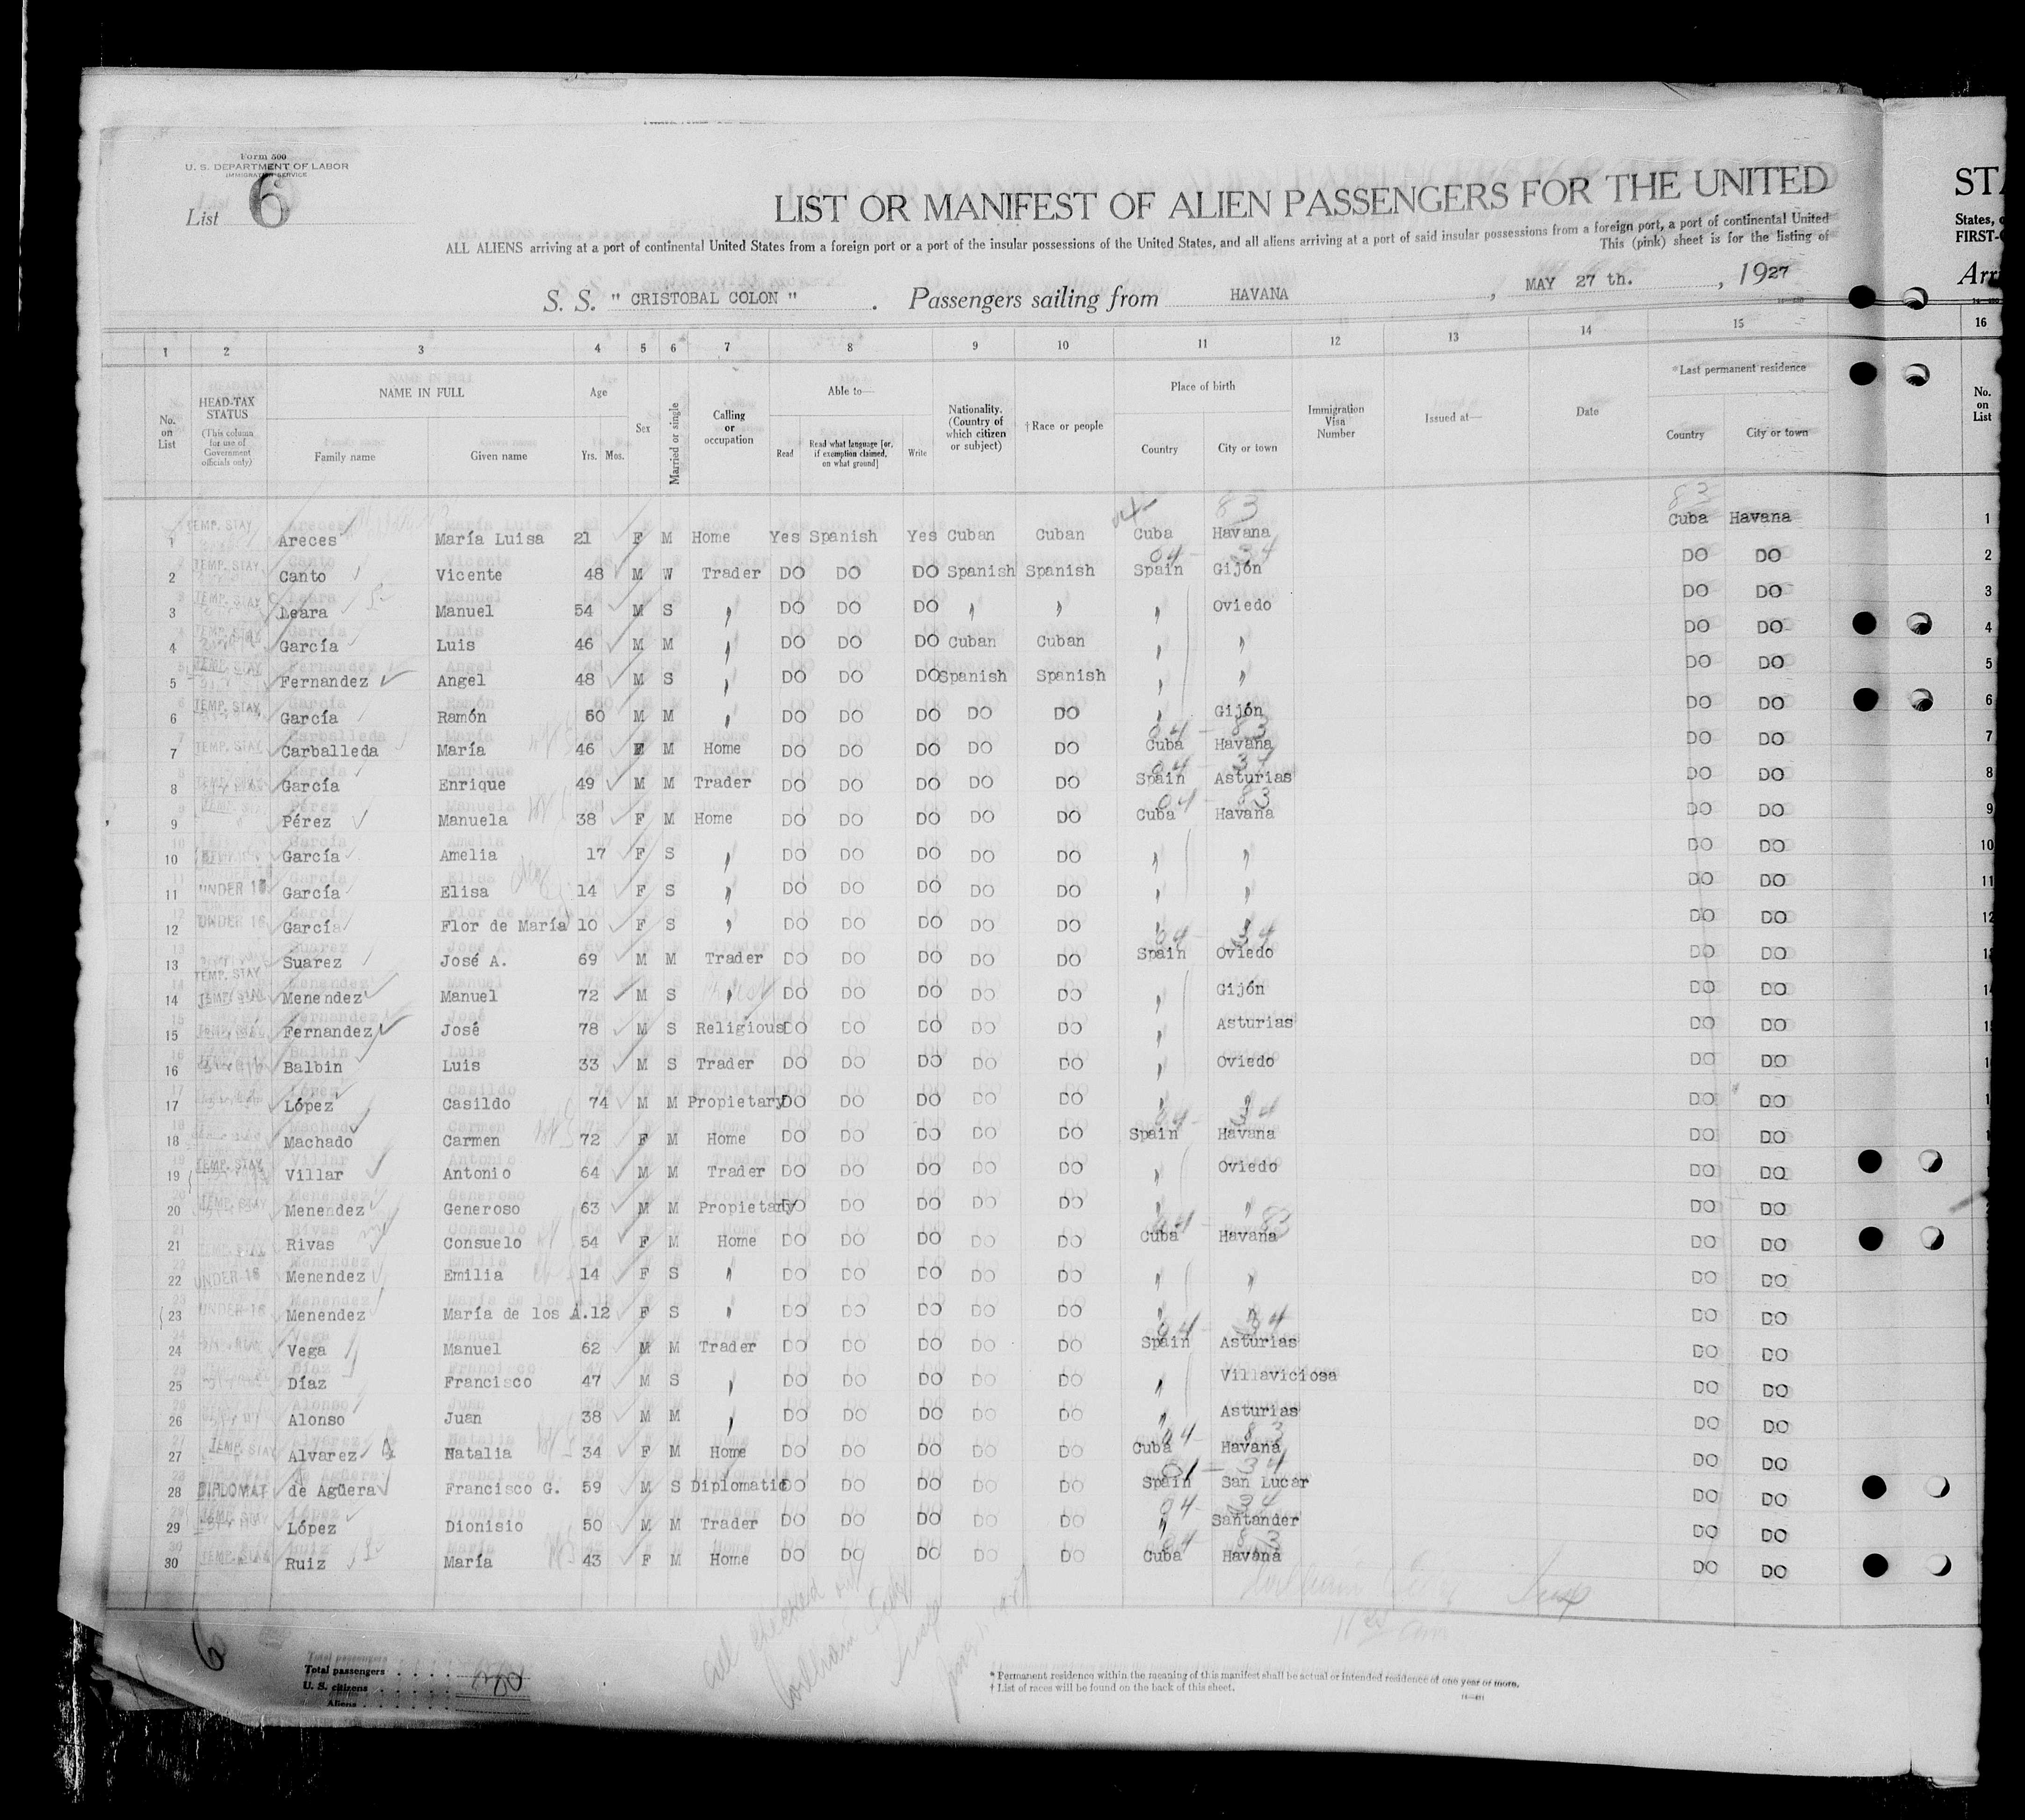 Form 500
U. S. DEPARTMENT OF LABOR
IMMIGRATION SERVICE
List 6
LIST OR MANIFEST OF ALIEN PASSENGERS FOR THE UNITED
ALL ALIENS arriving at a port of continental United States from a foreign port or a port of the insular possessions of the United States, and all aliens arriving at a port of said insular possessions from a foreign port, a port of continental United
This (pink) sheet is for the listing of
S. S. " CRISTOBAL COLON " . Passengers sailing from HAVANA , MAY 27 th. , 1927
STA
States, o
FIRST-C
Arri
1 2 3 4 5 6 7 8 9 10 11 12 13 14 15 16
No. on List
HEAD-TAX STATUS
(This column for use of Government officials only)
NAME IN FULL
Family name Given name
Age
Yrs. Mos.
Sex
Married or single
Calling or occupation
Able to—
Read Read what language [or, if exemption claimed, on what ground] Write
Nationality. (Country of which citizen or subject)
† Race or people
Place of birth
Country City or town
Immigration Visa Number
Issued at—
Date
*Last permanent residence
Country City or town
No. on List
04 83 83
1 TEMP. STAY Areces María Luisa 21 F M Home Yes Spanish Yes Cuban Cuban Cuba Havana Cuba Havana 1
04 34
2 TEMP. STAY Canto Vicente 48 M W Trader DO DO DO Spanish Spanish Spain Gijón DO DO 2
3 TEMP. STAY Leara Manuel 54 M S " DO DO DO " " " Oviedo DO DO 3
4 García Luis 46 M M " DO DO DO Cuban Cuban " " DO DO 4
5 TEMP. STAY Fernandez Angel 48 M S " DO DO DO Spanish Spanish " " DO DO 5
6 TEMP. STAY García Ramón 50 M M " DO DO DO DO DO " Gijón DO DO 6
04 83
7 TEMP. STAY Carballeda María 46 F M Home DO DO DO DO DO Cuba Havana DO DO 7
04 34
8 TEMP. STAY García Enrique 49 M M Trader DO DO DO DO DO Spain Asturias DO DO 8
04 83
9 Pérez Manuela 38 F M Home DO DO DO DO DO Cuba Havana DO DO 9
10 García Amelia 17 F S " DO DO DO DO DO " " DO DO 10
11 UNDER 16 García Elisa 14 F S " DO DO DO DO DO " " DO DO 11
12 UNDER 16 García Flor de María 10 F S " DO DO DO DO DO " " DO DO 12
04 34
13 TEMP. STAY Suarez José A. 69 M M Trader DO DO DO DO DO Spain Oviedo DO DO
14 TEMP. STAY Menendez Manuel 72 M S " DO DO DO DO DO " Gijón DO DO
15 TEMP. STAY Fernandez José 78 M S Religious DO DO DO DO DO " Asturias DO DO
16 Balbin Luis 33 M S Trader DO DO DO DO DO " Oviedo DO DO
17 López Casildo 74 M M Propietary DO DO DO DO DO " " DO DO
04 34
18 Machado Carmen 72 F M Home DO DO DO DO DO Spain Havana DO DO
19 TEMP. STAY Villar Antonio 64 M M Trader DO DO DO DO DO " Oviedo DO DO
20 TEMP. STAY Menendez Generoso 63 M M Propietary DO DO DO DO DO " " DO DO
04 83
21 TEMP. STAY Rivas Consuelo 54 F M Home DO DO DO DO DO Cuba Havana DO DO
22 UNDER 16 Menendez Emilia 14 F S " DO DO DO DO DO " " DO DO
23 UNDER 16 Menendez María de los A. 12 F S " DO DO DO DO DO " " DO DO
04 34
24 Vega Manuel 62 M M Trader DO DO DO DO DO Spain Asturias DO DO
25 Díaz Francisco 47 M S " DO DO DO DO DO " Villaviciosa DO DO
26 Alonso Juan 38 M M " DO DO DO DO DO " Asturias DO DO
04 83
27 TEMP. STAY Alvarez Natalia 34 F M Home DO DO DO DO DO Cuba Havana DO DO
01 34
28 DIPLOMAT de Agüera Francisco G. 59 M S Diplomatic DO DO DO DO DO Spain San Lucar DO DO
04 34
29 TEMP. STAY López Dionisio 50 M M Trader DO DO DO DO DO " Santander DO DO
04 83
30 TEMP. STAY Ruiz María 43 F M Home DO DO DO DO DO Cuba Havana DO DO
6
all checked out
William
Total passengers . . . . 30
U. S. citizens . . . . .
Aliens . . . . . .
* Permanent residence within the meaning of this manifest shall be actual or intended residence of one year or more.
† List of races will be found on the back of this sheet.